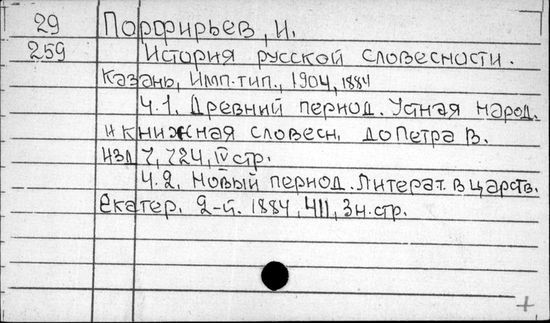 29 Порфирьев, И.
259 История русской словесности.
Казань, Имп. тип., 1904, 1884
Ч.1. Древний период. Устная народ.
и книжная словесн. до Петра В.
изд 7, 724, IV стр.
Ч.2. Новый период. Литерат. в царств.
Екатер. 2-й. 1884, 411, 3 н. стр.
+